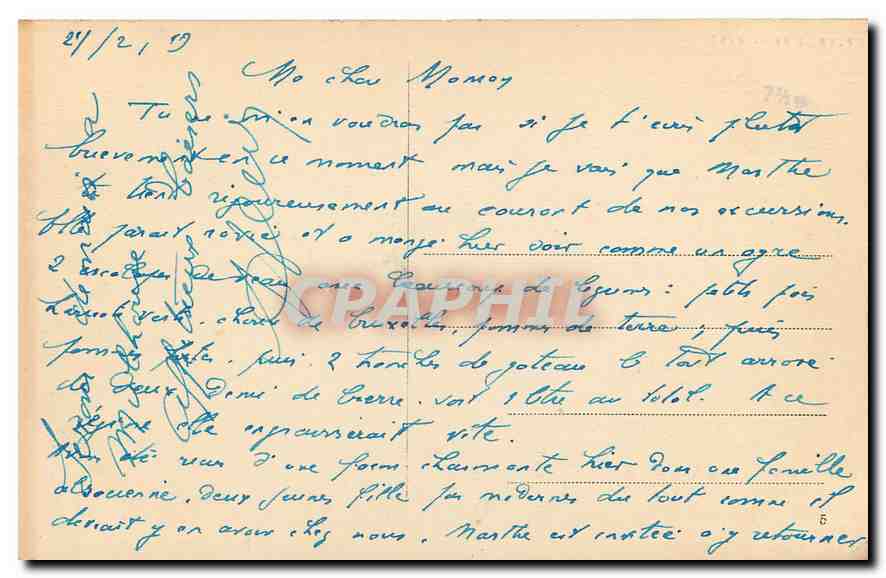 21/2/19
Ma chere Maman
Tu ne m'en voudras pas si je t'écris plutot
brievement en ce moment mais je sais que Marthe
te tient rigoureusement au courant de nos excursions.
Elle parait ravie et a mangé hier soir comme un ogre
2 escalopes de veau avec beaucoup de légumes : petits pois
haricots verts, choux de bruxelles, pommes de terre ; puis
pommes, puis 2 tranches de gateau le tout arrosé
de deux demi de bierre, soit 1 litre au total. A ce
régime elle engraisserait vite.
été reçus d'une façon charmante hier dans une famille
alsacienne, deux jeunes filles pas modernes du tout comme il
devrait y en avoir chez nous. Marthe est invitée à y retourner
demain
Mulhouse
Affectueux baisers
CPAPHIL
6